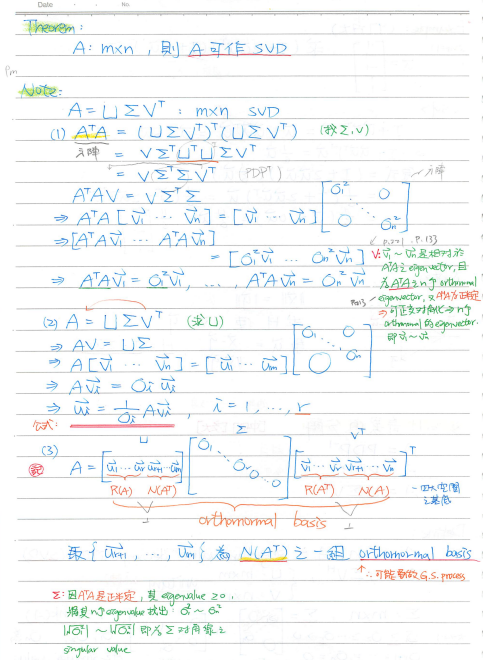 Date No.
Theorem:
A: m×n, 則 A 可作 SVD
Note:
A = U Σ V^T : m×n SVD
(1) A^T A = (U Σ V^T)^T (U Σ V^T) (找 Σ, V)
方陣 = V Σ^T U^T U Σ V^T
= V Σ^T Σ V^T (PDP^T)
A^T A V = V Σ^T Σ 方陣
⇒ A^T A [v⃗1 ⋯ v⃗n] = [v⃗1 ⋯ v⃗n] [σ1² 0 ⋱ 0 σn²]
⇒ [A^T A v⃗1 ⋯ A^T A v⃗n]
= [σ1² v⃗1 ⋯ σn² v⃗n]
⇒ A^T A v⃗1 = σ1² v⃗1, ⋯, A^T A v⃗n = σn² v⃗n
P.133
V: v⃗1 ~ v⃗n 是相對於
A^T A 之 eigenvector, 且
為 A^T A 之 n个 orthonormal
eigenvector, 又 A^T A 為正定
⇒ 可正交對角化 ⇒ n个
orthonormal 的 eigenvector.
即 v⃗1 ~ v⃗n
(2) A = U Σ V^T (求 U)
⇒ A V = U Σ
⇒ A [v⃗1 ⋯ v⃗n] = [u⃗1 ⋯ u⃗m] [σ1 ⋱ σn 0]
⇒ A v⃗i = σi u⃗i
⇒ u⃗i = 1/σi A v⃗i, i = 1, ⋯, r
公式:
(3) U Σ V^T
記 A = [u⃗1 ⋯ u⃗r u⃗r+1 ⋯ u⃗m] [σ1 ⋱ σr 0 ⋱ 0] [v⃗1 ⋯ v⃗r v⃗r+1 ⋯ v⃗n]^T
R(A) N(A^T) R(A^T) N(A) - 四大空間
之基底
⊥ orthonormal basis ⊥
取 {u⃗r+1, ⋯, u⃗m} 為 N(A^T) 之一組 orthonormal basis
↑∴ 可能要做 G.S. process
Σ: 因 A^T A 是正定, 其 eigenvalue ≥ 0,
將其 n个 eigenvalue 找出: σ1² ~ σn²
|√σ1²| ~ |√σn²| 即為 Σ 對角線之
singular value